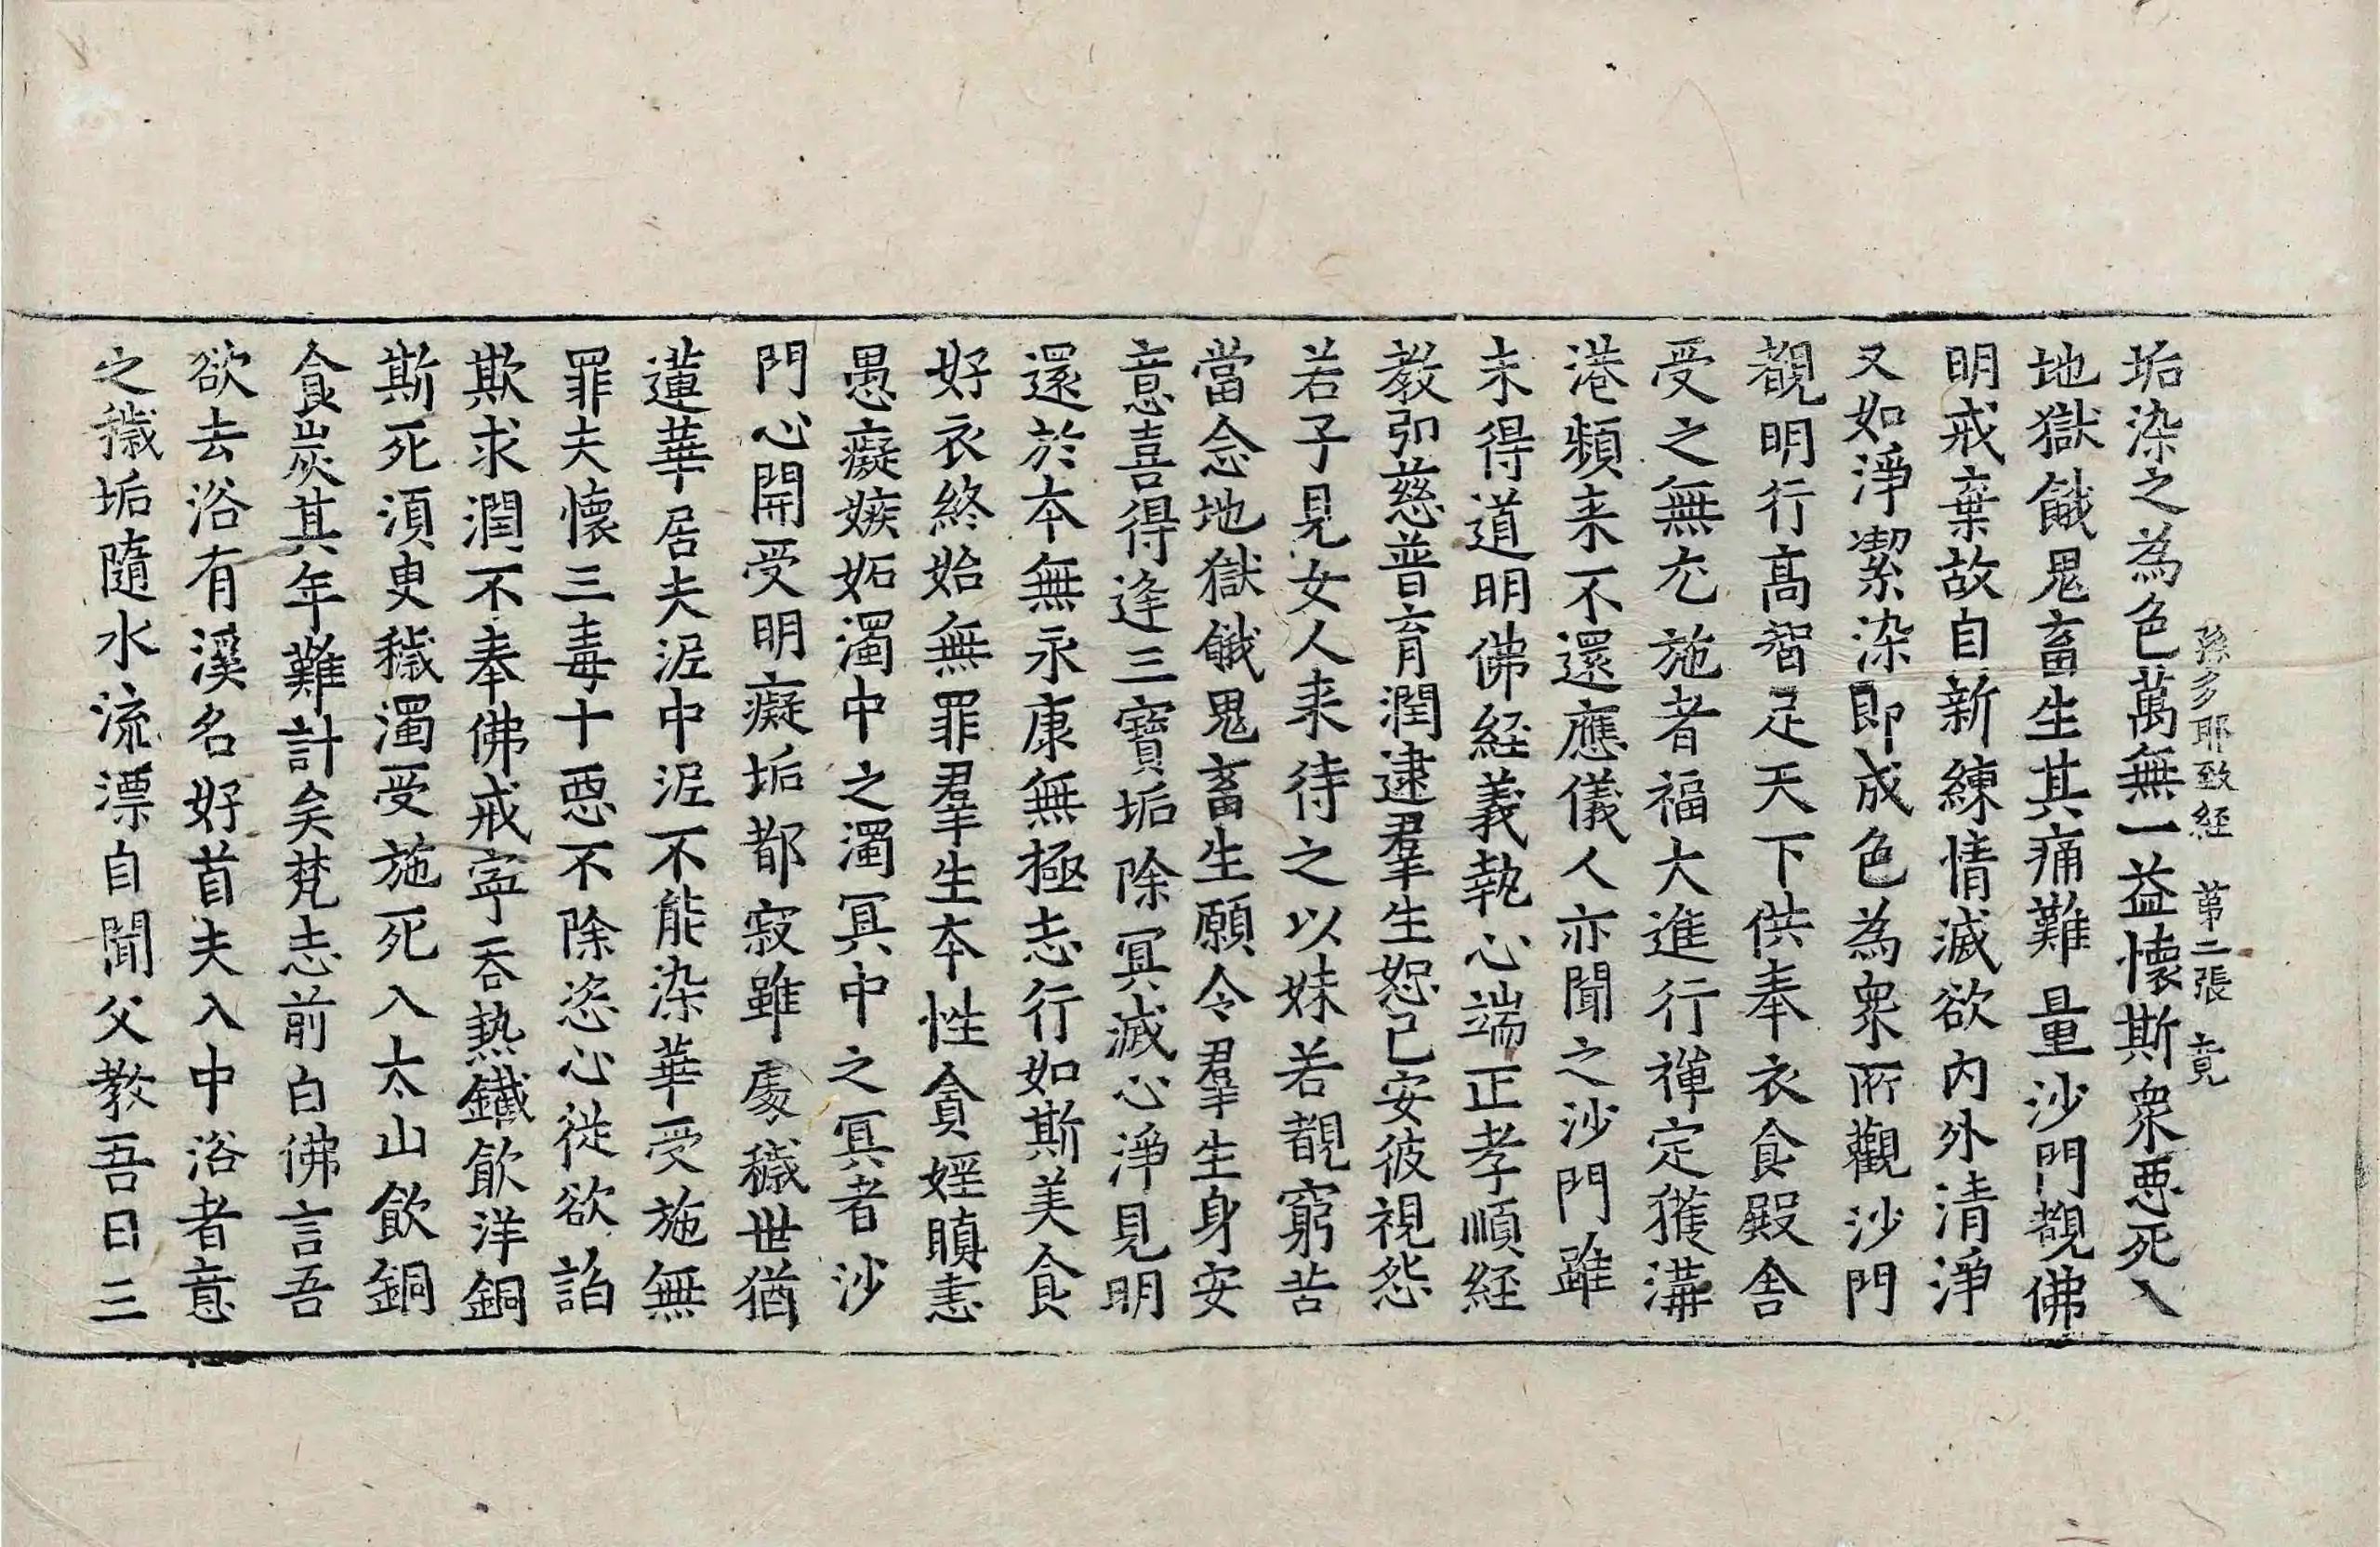 孫多耶致経 第二張 竟
垢染之為色萬無一益懷斯衆惡死入
地獄餓鬼畜生其痛難量沙門覩佛
明戒棄故自新練情滅欲內外清淨
又如淨潔染即成色為衆所觀沙門
覩明行髙智足天下供奉衣食殿舎
受之無尤施者福大進行禪定獲溝
港頻来不還應儀人亦聞之沙門雖
未得道明佛経義執心端正孝順経
教弘慈普育潤逮羣生恕己安彼視怨
若子見女人来待之以妹若覩窮苦
當念地獄餓鬼畜生願令羣生身安
意喜得逢三寳垢除冥滅心淨見明
還於本無永康無極志行如斯美食
好衣終始無罪羣生本性貪婬瞋恚
愚癡嫉妬濁中之濁冥中之冥者沙
門心開受明癡垢都寂雖處穢世猶
蓮華居夫泥中泥不能染華受施無
罪夫懷三毒十惡不除恣心從欲諂
欺求潤不奉佛戒寧吞熱鐵飲洋銅
斯死須臾穢濁受施死入太山飲銅
食炭其年難計矣梵志前白佛言吾
欲去浴有溪名好首夫入中浴者意
之穢垢隨水流漂自聞父教吾日三